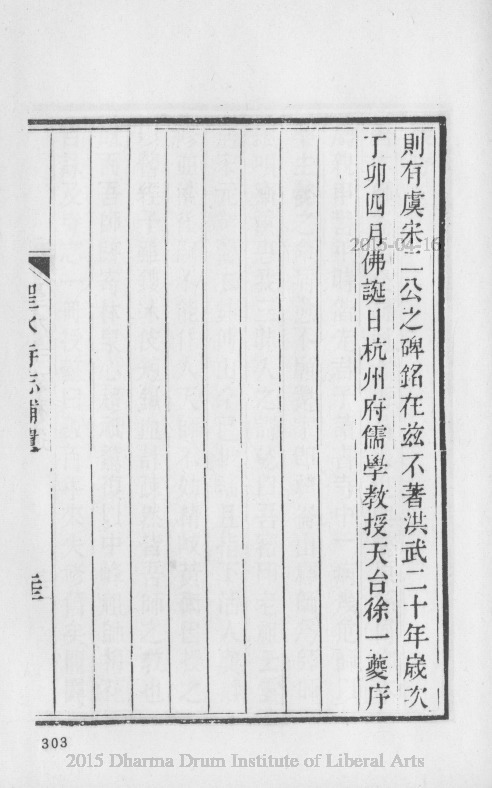 則有虞宋二公之碑銘在茲不著洪武二十年歲次
丁卯四月佛誕日杭州府儒學教授天台徐一夔序
聖水寺志補遺
303
2015-04-16
2015 Dharma Drum Institute of Liberal Arts